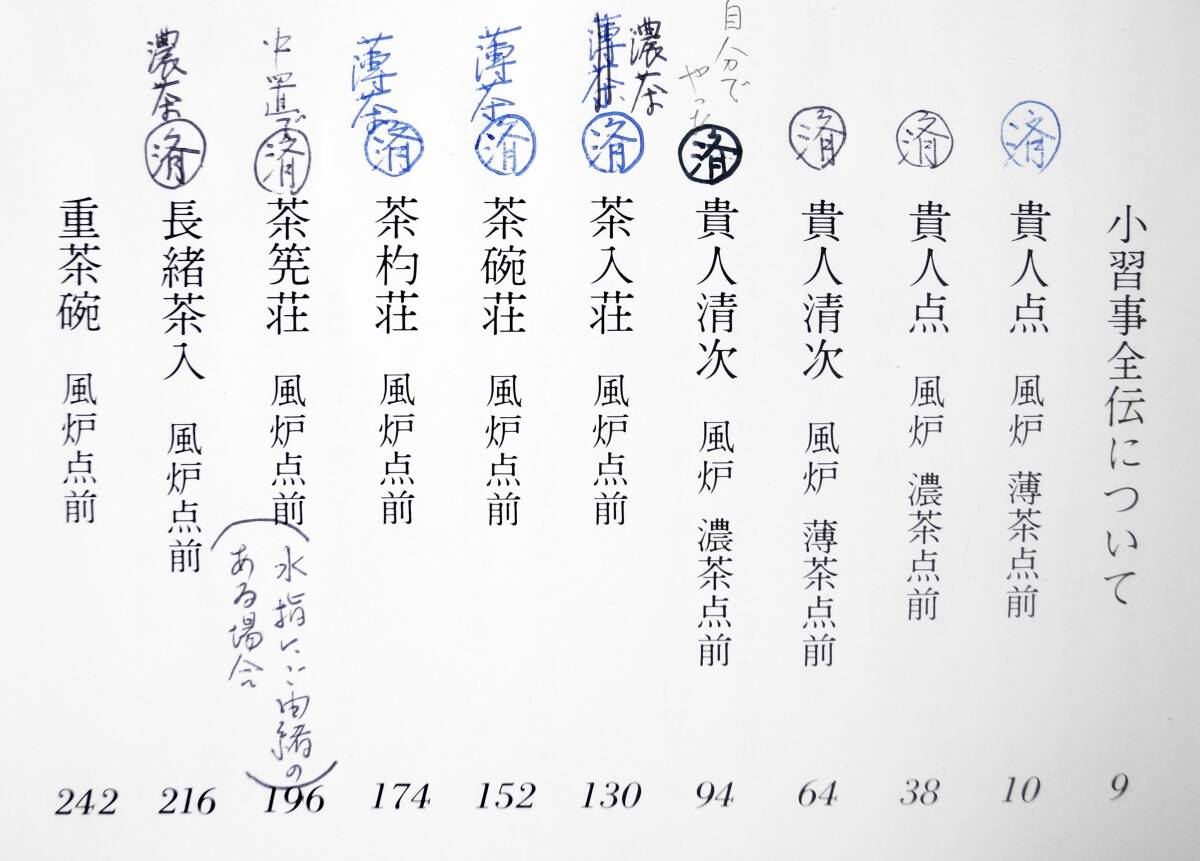 小習事全伝について 9
済 貴人点 風炉 薄茶点前 10
済 貴人点 風炉 濃茶点前 38
済 貴人清次 風炉 薄茶点前 64
自分で
やった
済 貴人清次 風炉 濃茶点前 94
濃茶
薄茶
済 茶入荘 風炉点前 130
薄茶
済 茶碗荘 風炉点前 152
薄茶
済 茶杓荘 風炉点前 174
中置で
済 茶筅荘 風炉点前 196
(水指にご由緒の
ある場合)
濃茶
済 長緒茶入 風炉点前 216
重茶碗 風炉点前 242